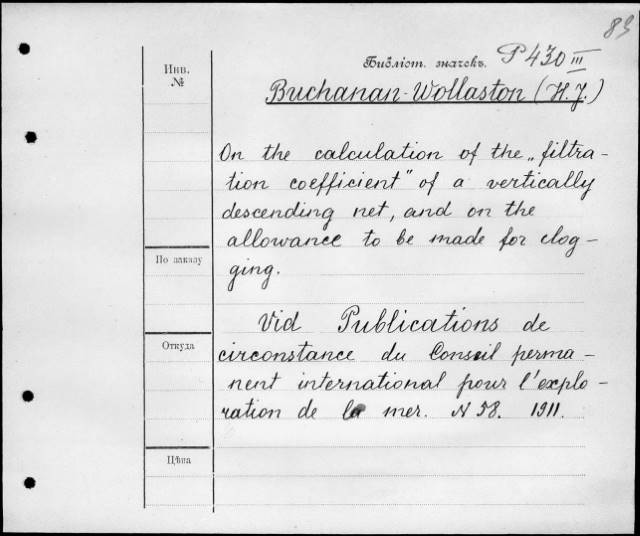 83
Библіот. значекъ. P 430 III
Инв.
№
Buchanan-Wollaston (H. J.)
On the calculation of the „filtra-
tion coefficient" of a vertically
descending net, and on the
allowance to be made for clog-
ging.
По заказу
Vid Publications de
Откуда
circonstance du Conseil perma-
nent international pour l'explo-
ration de la mer. N 58. 1911.
Цѣна